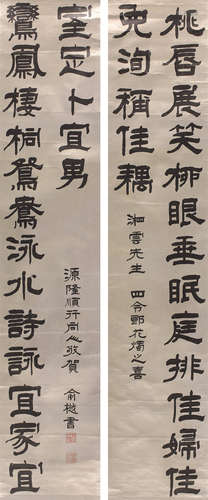 桃唇展笑柳眼垂眠庭排佳婦佳
兒洵稱佳耦
湘雲先生 四令郎花燭之喜
鸞鳳棲桐鴛鴦泳水詩詠宜家宜
室定卜宜男
源隆順行同人敬賀
俞樾書